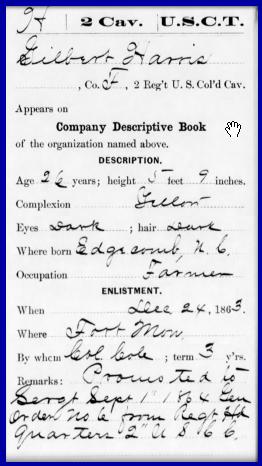 H | 2 Cav. | U.S.C.T.
Gilbert Harris
, Co. F, 2 Reg't U. S. Col'd Cav.
Appears on
Company Descriptive Book
of the organization named above.
DESCRIPTION.
Age 26 years; height 5 feet 9 inches.
Complexion Yellow
Eyes Dark ; hair Dark
Where born Edgecomb, N. C.
Occupation Farmer
ENLISTMENT.
When Dec 24, 1863.
Where Fort Mon
By whom Col Cole ; term 3 y'rs.
Remarks: Promoted to
Sergt Sept 1" 1864 Gen
Order No 6 from Regt Hd
Quarters 2" U S C C